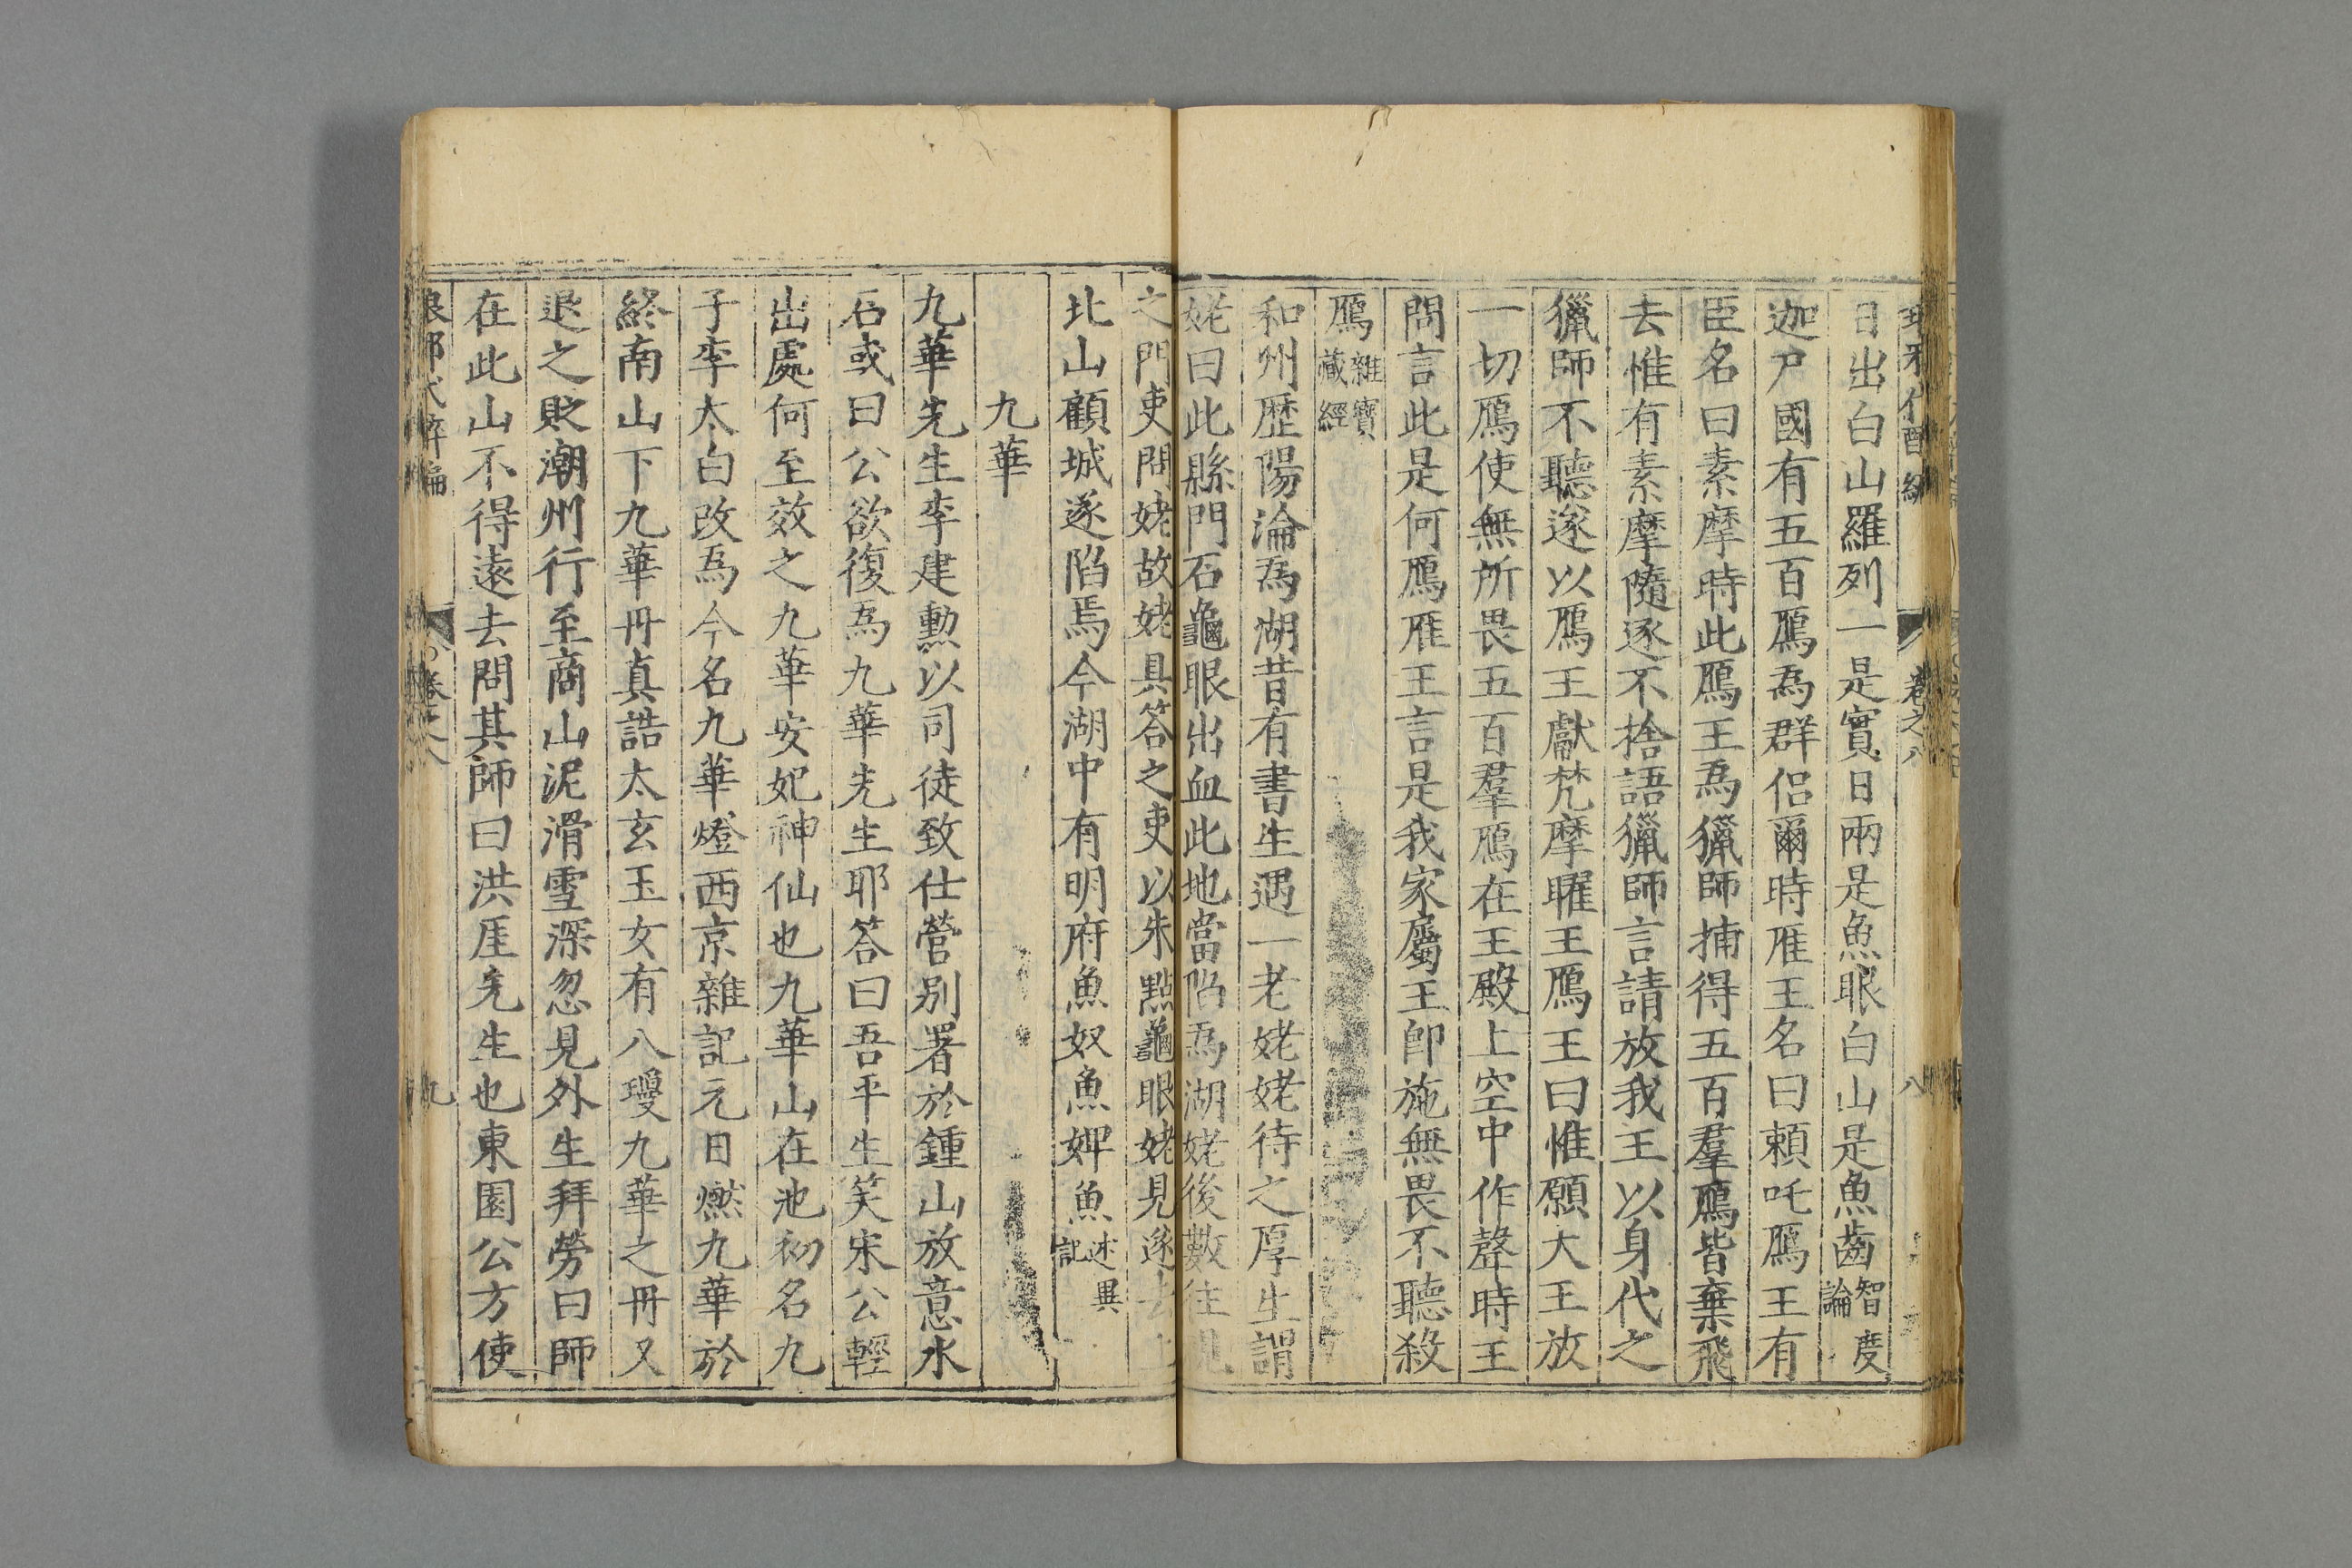 日出白山羅列一是實日兩是魚眼白山是魚齒智度論
迦尸國有五百鴈為群侶爾時雁王名曰頼吒鴈王有
臣名曰素摩時此鴈王為獵師捕得五百羣鴈皆棄飛
去惟有素摩隨逐不捨語獵師言請放我王以身代之
獵師不聽遂以鴈王獻梵摩曜王鴈王曰惟願大王放
一切鴈使無所畏五百羣鴈在王殿上空中作聲時王
問言此是何鴈雁王言是我家屬王卽施無畏不聽殺
鴈雜寶藏經
和州歷陽淪為湖昔有書生遇一老姥姥待之厚生謂
姥曰此縣門石龜眼出血此地當陷為湖姥後數往視
之門吏問姥故姥具答之吏以朱點龜眼姥見遂去上
北山顧城遂陷焉今湖中有明府魚奴魚婢魚述異記
九華
九華先生李建勲以司徒致仕營別署於鍾山放意水
石或曰公欲復為九華先生耶答曰吾平生笑宋公輕
出處何至效之九華安妃神仙也九華山在池初名九
子李太白改為今名九華燈西京雜記元日燃九華於
終南山下九華丹真誥太玄玉女有八瓊九華之丹又
退之貶潮州行至商山泥滑雪深忽見外生拜勞曰師
在此山不得遠去問其師曰洪厓先生也東園公方使
卷之八
八
卷之八
九